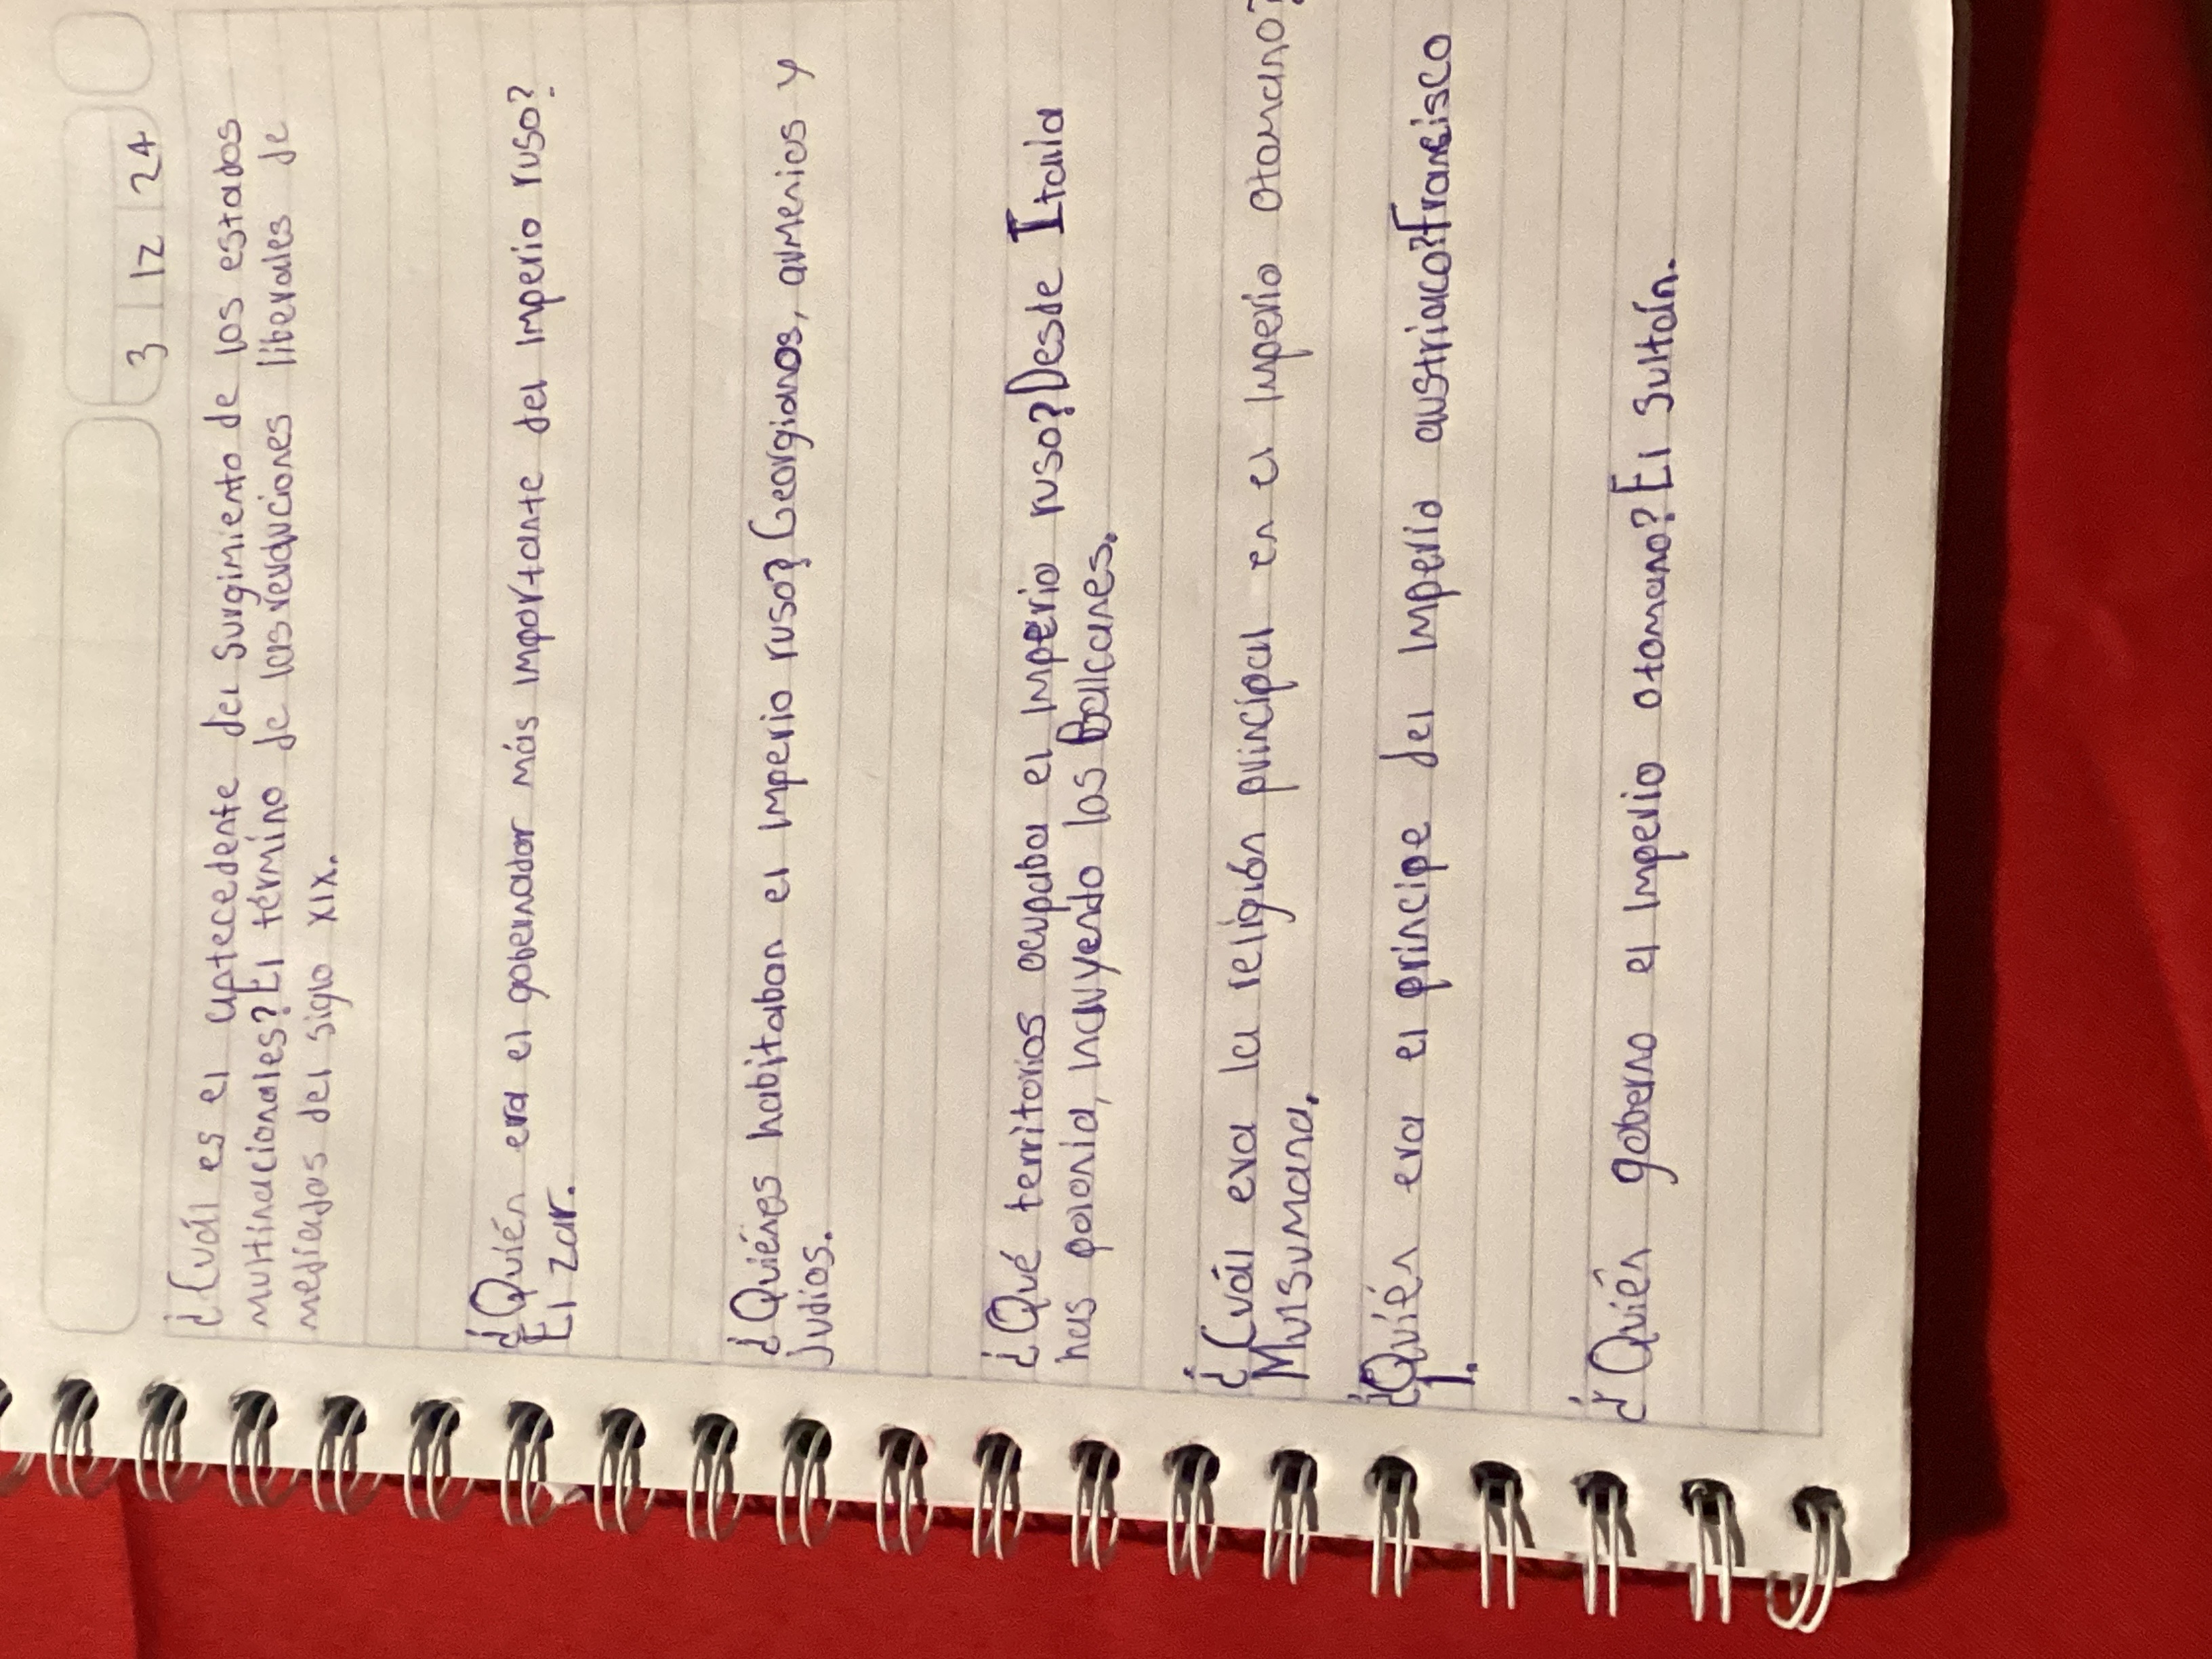 3 12 24
¿Cuál es el antecedente del surgimiento de los estados
multinacionales? El término de las revoluciones liberales de
mediados del siglo XIX.
¿Quién era el gobernador más importante del imperio ruso?
El zar.
¿Quiénes habitaban el imperio ruso? Georgianos, armenios y
judíos.
¿Qué territorios ocupaba el imperio ruso? Desde Italia
has polonia, incluyendo los Balcanes.
¿Cuál era la religión principal en el imperio otomano?
Musumana.
¿Quién era el príncipe del imperio austriaco? Francisco
1.
¿Quién goberno el imperio otomano? El Sultán.